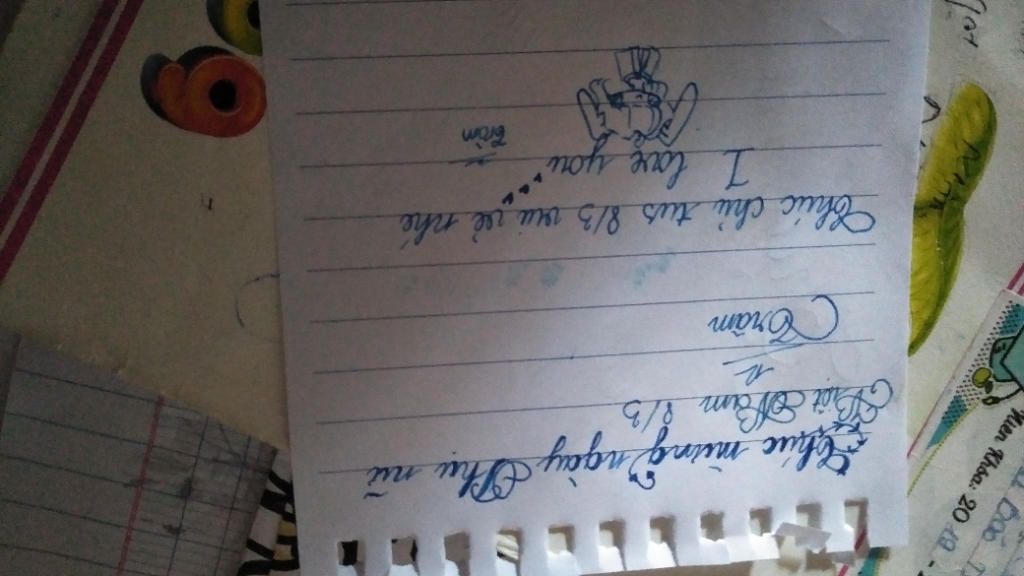 Chúc mừng ngày Phụ nữ
Việt Nam 8/3
Trâm
Chúc chủ tus 8/3 vui vẻ nhé
I love you
Trâm
Khoa: 20